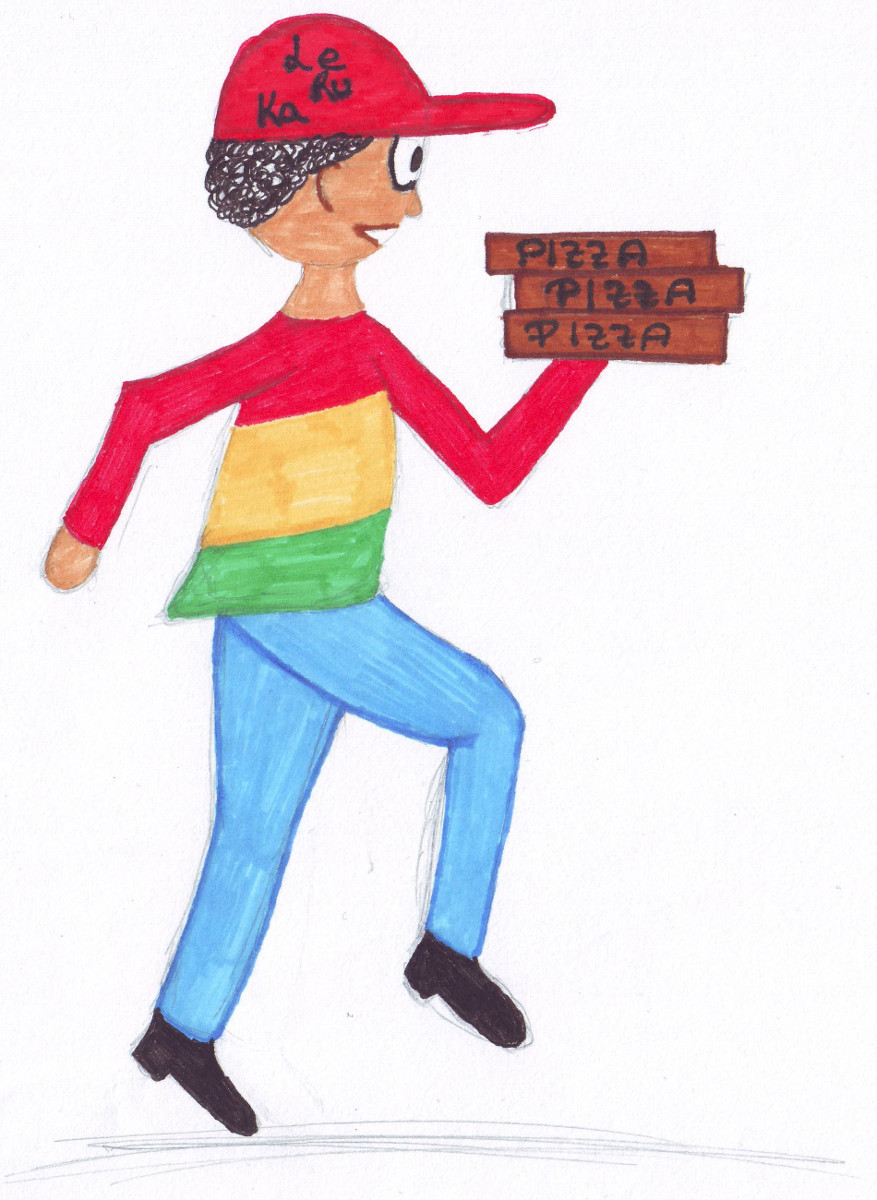 Le
Ka Ru
PIZZA
PIZZA
PIZZA